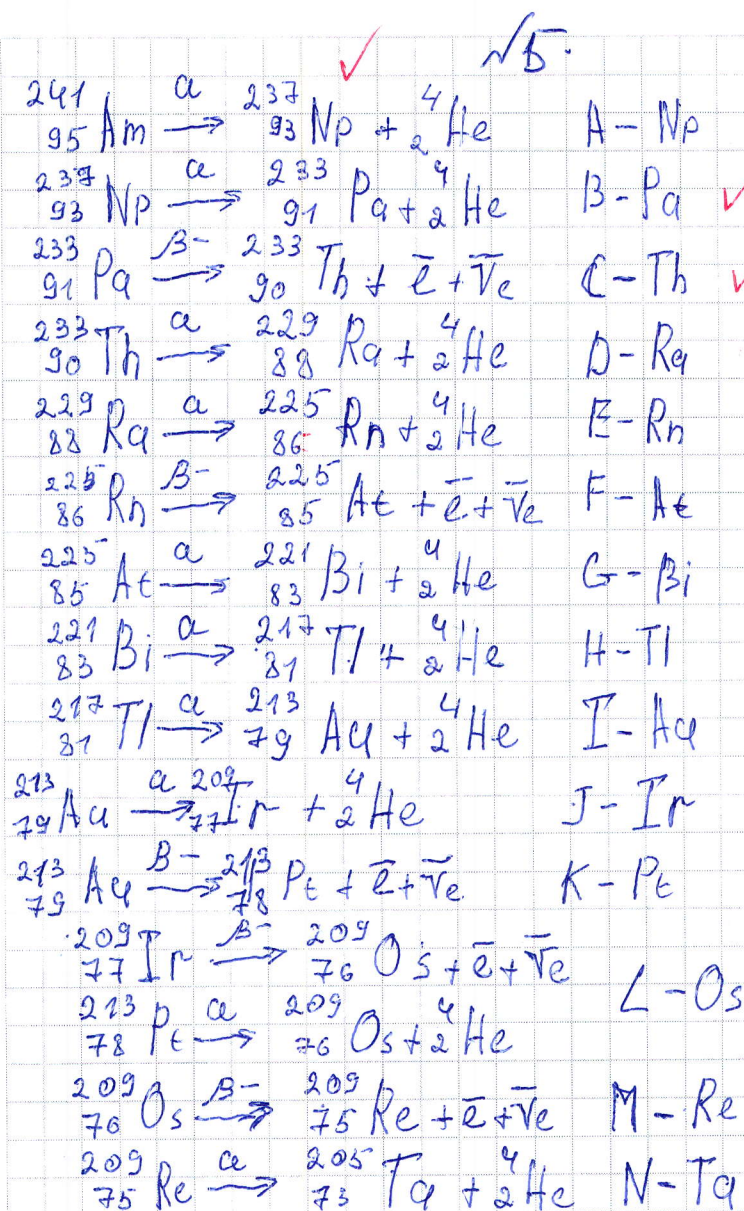 №5.
²⁴¹₉₅Am —α→ ²³⁷₉₃Np + ⁴₂He A – Np
²³⁷₉₃Np —α→ ²³³₉₁Pa + ⁴₂He B – Pa
²³³₉₁Pa —β-→ ²³³₉₀Th + e̅ + ν̅e C – Th
²³³₉₀Th —α→ ²²⁹₈₈Ra + ⁴₂He D – Ra
²²⁹₈₈Ra —α→ ²²⁵₈₆Rn + ⁴₂He E – Rn
²²⁵₈₆Rn —β-→ ²²⁵₈₅At + e̅ + ν̅e F – At
²²⁵₈₅At —α→ ²²¹₈₃Bi + ⁴₂He G – Bi
²²¹₈₃Bi —α→ ²¹⁷₈₁Tl + ⁴₂He H – Tl
²¹⁷₈₁Tl —α→ ²¹³₇₉Au + ⁴₂He I – Au
²¹³₇₉Au —α→ ²⁰⁹₇₇Ir + ⁴₂He J – Ir
²¹³₇₉Au —β-→ ²¹³₇₈Pt + e̅ + ν̅e K – Pt
²⁰⁹₇₇Ir —β-→ ²⁰⁹₇₆Os + e̅ + ν̅e
L – Os
²¹³₇₈Pt —α→ ²⁰⁹₇₆Os + ⁴₂He
²⁰⁹₇₆Os —β-→ ²⁰⁹₇₅Re + e̅ + ν̅e M – Re
²⁰⁹₇₅Re —α→ ²⁰⁵₇₃Ta + ⁴₂He N – Ta